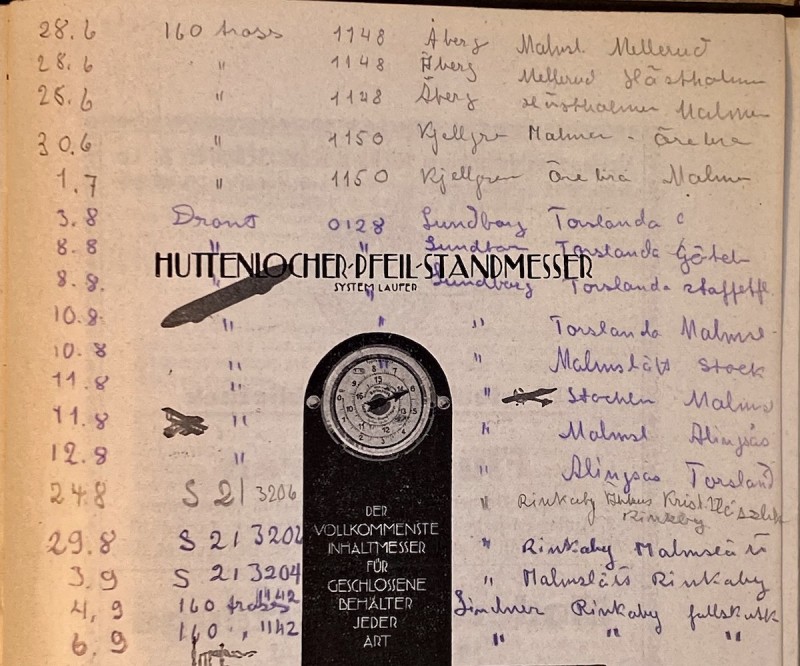 28.6 160 trass 1148 Åberg Malmsl Mellerud
28.6 " 1148 Åberg Mellerud Hästholmen
28.6 " 1148 Åberg Hästholmen Malmen
30.6 " 1150 Kjellgren Malmen - Örebro
1.7 " 1150 Kjellgren Örebro Malmen
3.8 0128 Lundborg Torslanda
8.8 " " Lundborg Torslanda Göteb
HUTTENLOCHER-PFEIL-STANDMESSER
SYSTEM LAUFER
8.8. " Lundborg Torslanda
10.8 " " " Torslanda Malmsl
10.8 " " " Malmslätt Stock
11.8 " " Malms
11.8 " " Malmsl Alingsås
12.8 " " Alingsås Torsland
24.8 S 21 3206 " Rinkaby Krist
Rinkaby
29.8 S 21 " Rinkaby Malmslätt
3.9 S 21 3204 " Malmslätt Rinkaby
4.9 160 trass 1142 Lindner Rinkaby
6.9 160 " 1142 " " "
DER
VOLLKOMMENSTE
INHALTMESSER
FÜR
GESCHLOSSENE
BEHÄLTER
JEDER
ART